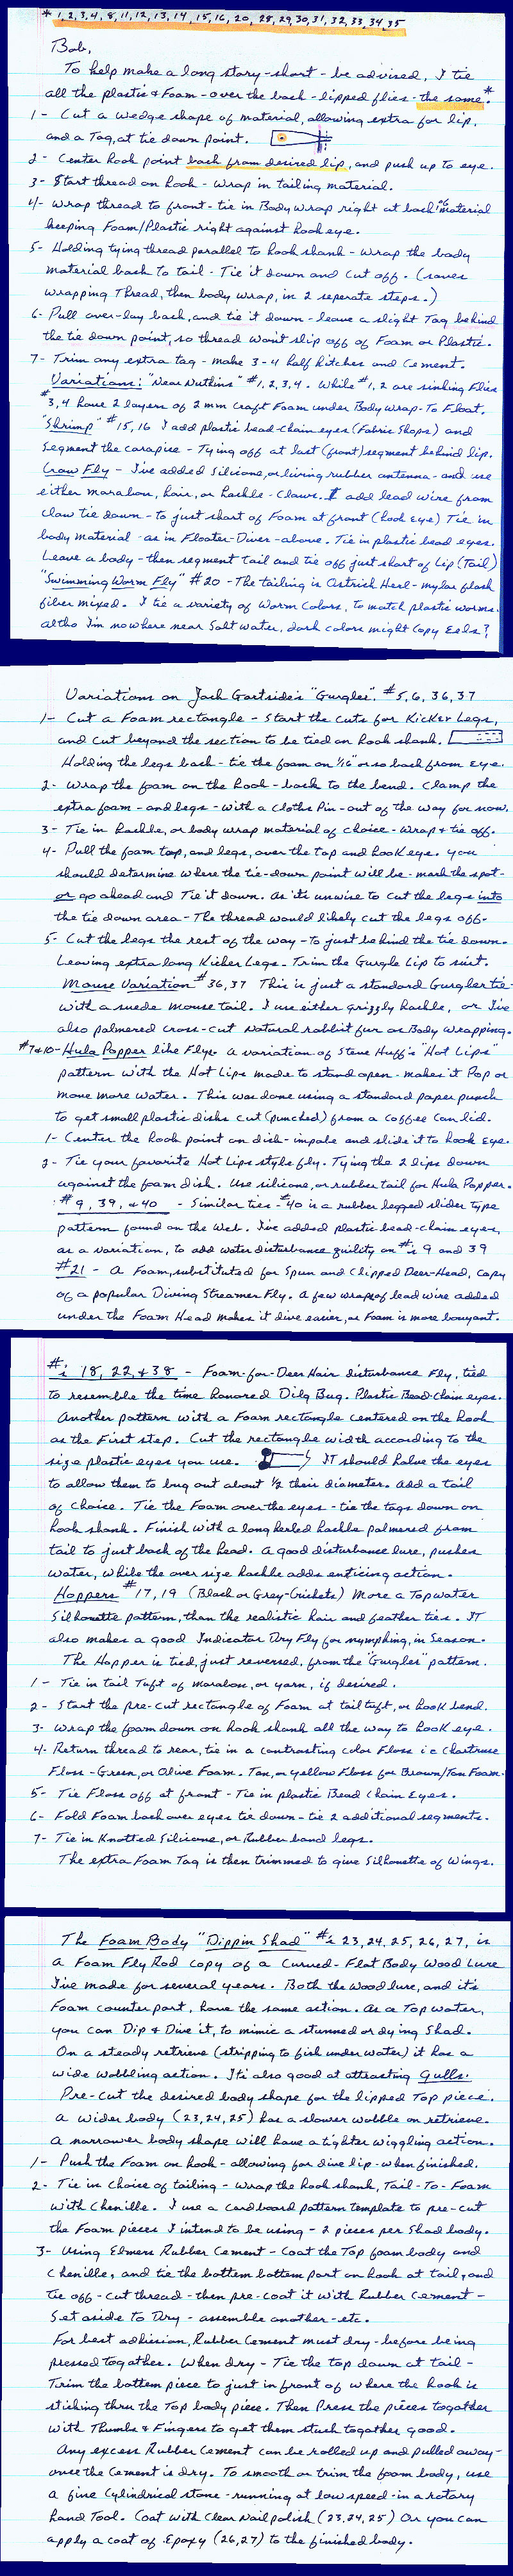 * 1, 2, 3, 4, 8, 11, 12, 13, 14, 15, 16, 20, 28, 29, 30, 31, 32, 33, 34, 35
Bob,
To help make a long story-short - be advised, I tie
all the plastic & Foam - over the back - lipped flies - the same.*
1- Cut a wedge shape of material, allowing extra for lip,
and a Tag, at tie down point.
2- Center hook point back from desired lip, and push up to eye.
3- Start thread on hook - wrap in tailing material.
4- Wrap thread to front - tie in Body wrap right at back material
keeping Foam/Plastic right against hook eye.
5- Holding tying thread parallel to hook shank - wrap the body
material back to tail - Tie it down and cut off. (saves
wrapping Thread, then body wrap, in 2 seperate steps.)
6- Pull over-lay back, and tie it down - leave a slight Tag behind
the tie down point, so thread won't slip off of Foam or Plastic.
7- Trim any extra tag - make 3-4 half hitches and Cement.
Variations: "Near Nuthins" #1, 2, 3, 4. While #1, 2 are sinking Flies
#3, 4 have 2 layers of 2 mm Craft Foam under Body wrap - To Float.
"Shrimp" #15, 16 I add plastic bead-chain eyes (Fabric Shops) and
Segment the carapise - Tying off at last (front) segment behind lip.
Craw Fly - I've added Silicone, or living rubber antenna - and use
either marabou, hair, or hackle - claws. I add lead wire from
claw tie down - to just short of Foam at front (hook eye) Tie in
body material - as in Floater-Diver - above. Tie in plastic bead eyes.
Leave a body - then segment Tail and tie off just short of Lip (Tail)
"Swimming Worm Fly" #20 - The tailing is Ostrich Herl - mylar flash
fiber mixed. I tie a variety of Worm Colors, to match plastic worms.
altho I'm nowhere near Salt water, dark colors might Copy Eels?
Variations on Jack Gartside's "Gurgler". #5, 6, 36, 37
1- Cut a Foam rectangle - Start the cuts for Kicker Legs,
and cut beyond the section to be tied on hook shank.
Holding the legs back - tie the foam on 1/16" or so back from eye.
2- Wrap the foam on the hook - back to the bend. Clamp the
extra foam - and legs - with a Clothes Pin - out of the way for now.
3- Tie in hackle, or body wrap material of choice - wrap & tie off.
4- Pull the foam top, and legs, over the top and hook eye. you
should determine where the tie-down point will be - mark the spot -
or go ahead and Tie it down. As it's unwise to cut the legs into
the tie down area - The thread would likely cut the legs off.
5- Cut the legs the rest of the way - to just behind the tie down.
Leaving extra long Kicker Legs - Trim the Gurgle Lip to suit.
Mouse Variation #36, 37 This is just a standard Gurgler tie -
with a suede mouse tail. I use either grizzly hackle, or I've
also palmered cross-cut natural rabbit fur as Body wrapping.
#7 & 10 - Hula Popper like Flys. A variation of Steve Huff's "Hot Lips"
pattern with the Hot Lips made to stand open - makes it Pop or
move more water. This was done using a standard paper punch
to get small plastic disks cut (punched) from a coffee can lid.
1- Center the hook point on disk - impale and slide it to hook eye.
2- Tie your favorite Hot Lips style fly. Tying the 2 lips down
against the foam disk. Use silicone, or rubber tail for Hula Popper.
#9, 39, & 40 - Similar ties - #40 is a rubber legged slider type
pattern found on the Web. I've added plastic bead-chain eyes,
as a variation, to add water disturbance quility on #'s 9 and 39
#21 - A Foam, substituted for Spun and Clipped Deer-Head, copy
of a popular Diving Streamer Fly. A few wraps of lead wire added
under the Foam Head makes it dive easier, as Foam is more bouyant.
#'s 18, 22 & 38 - Foam-for-Deer Hair disturbance Fly, tied
to resemble the time honored Dilg Bug. Plastic Bead-Chain eyes.
Another pattern with a Foam rectangle centered on the hook
as the First step. Cut the rectangle width according to the
size plastic eyes you use. IT should halve the eyes
to allow them to bug out about 1/2 their diameter. Add a tail
of Choice. Tie the Foam over the eyes - tie the tags down on
hook shank. Finish with a long herled hackle palmered from
tail to just back of the head. A good disturbance lure, pushes
water, while the over size hackle adds enticing action.
Hoppers #17, 19 (Black or Grey-Crickets) More a Topwater
Silhouette pattern, than the realistic hair and feather ties. IT
also makes a good Indicator Dry Fly for nymphing, in Season.
The Hopper is tied, just reversed, from the "Gurgler" pattern.
1- Tie in tail Tuft of marabou, or yarn, if desired.
2- Start the pre-cut rectangle of Foam at tail tuft, or hook bend.
3- Wrap the foam down on hook shank all the way to hook eye.
4- Return thread to rear, tie in a contrasting color Floss i.e Chartruse
Floss - Green, or Olive Foam. Tan, or yellow Floss for Brown/Tan Foam.
5- Tie Floss off at front - Tie in plastic Bead Chain Eyes.
6- Fold Foam back over eyes tie down - tie 2 additional segments.
7- Tie in Knotted Silicone, or Rubber band legs.
The extra Foam Tag is then trimmed to give Silhouette of Wings.
The Foam Body "Dippin Shad" #'s 23, 24, 25, 26, 27, is
a Foam Fly Rod copy of a Curved-Flat Body Wood Lure
I've made for several years. Both the Wood lure, and it's
Foam counter part, have the same action. As a Top water,
you can Dip & Dive it, to mimic a stunned or dying Shad.
On a steady retrieve (stripping to fish under water) it has a
wide wobbling action. It's also good at attracting Gulls.
Pre-Cut the desired body shape for the lipped Top piece.
a wider body (23, 24, 25) has a slower wobble on retrieve.
a narrower body shape will have a tighter wiggling action.
1- Push the Foam on hook - allowing for dive lip - when finished.
2- Tie in Choice of tailing - Wrap the hook shank, Tail-To-Foam
with Chenille. I use a cardboard pattern template to pre-cut
the Foam pieces I intend to be using - 2 pieces per Shad body.
3- Using Elmers Rubber Cement - Coat the Top foam body and
Chenille, and tie the bottem bottem part on hook at tail, and
tie off - cut thread - then pre-coat it with Rubber Cement -
Set aside to Dry - assemble another - etc.
For best adhiesion, Rubber Cement must dry - before being
pressed together. When dry - Tie the top down at tail -
Trim the bottem piece to just in front of where the hook is
sticking thru the Top body piece. Then Press the pieces together
with Thumbs & Fingers to get them stuck together good.
Any excess Rubber Cement can be rolled up and pulled away -
once the cement is dry. To smooth or trim the foam body, use
a fine Cylindrical stone - running at low speed - in a rotary
hand Tool. Coat with Clear Nail polish (23, 24, 25) Or you can
apply a coat of Epoxy (26, 27) to the finished body.